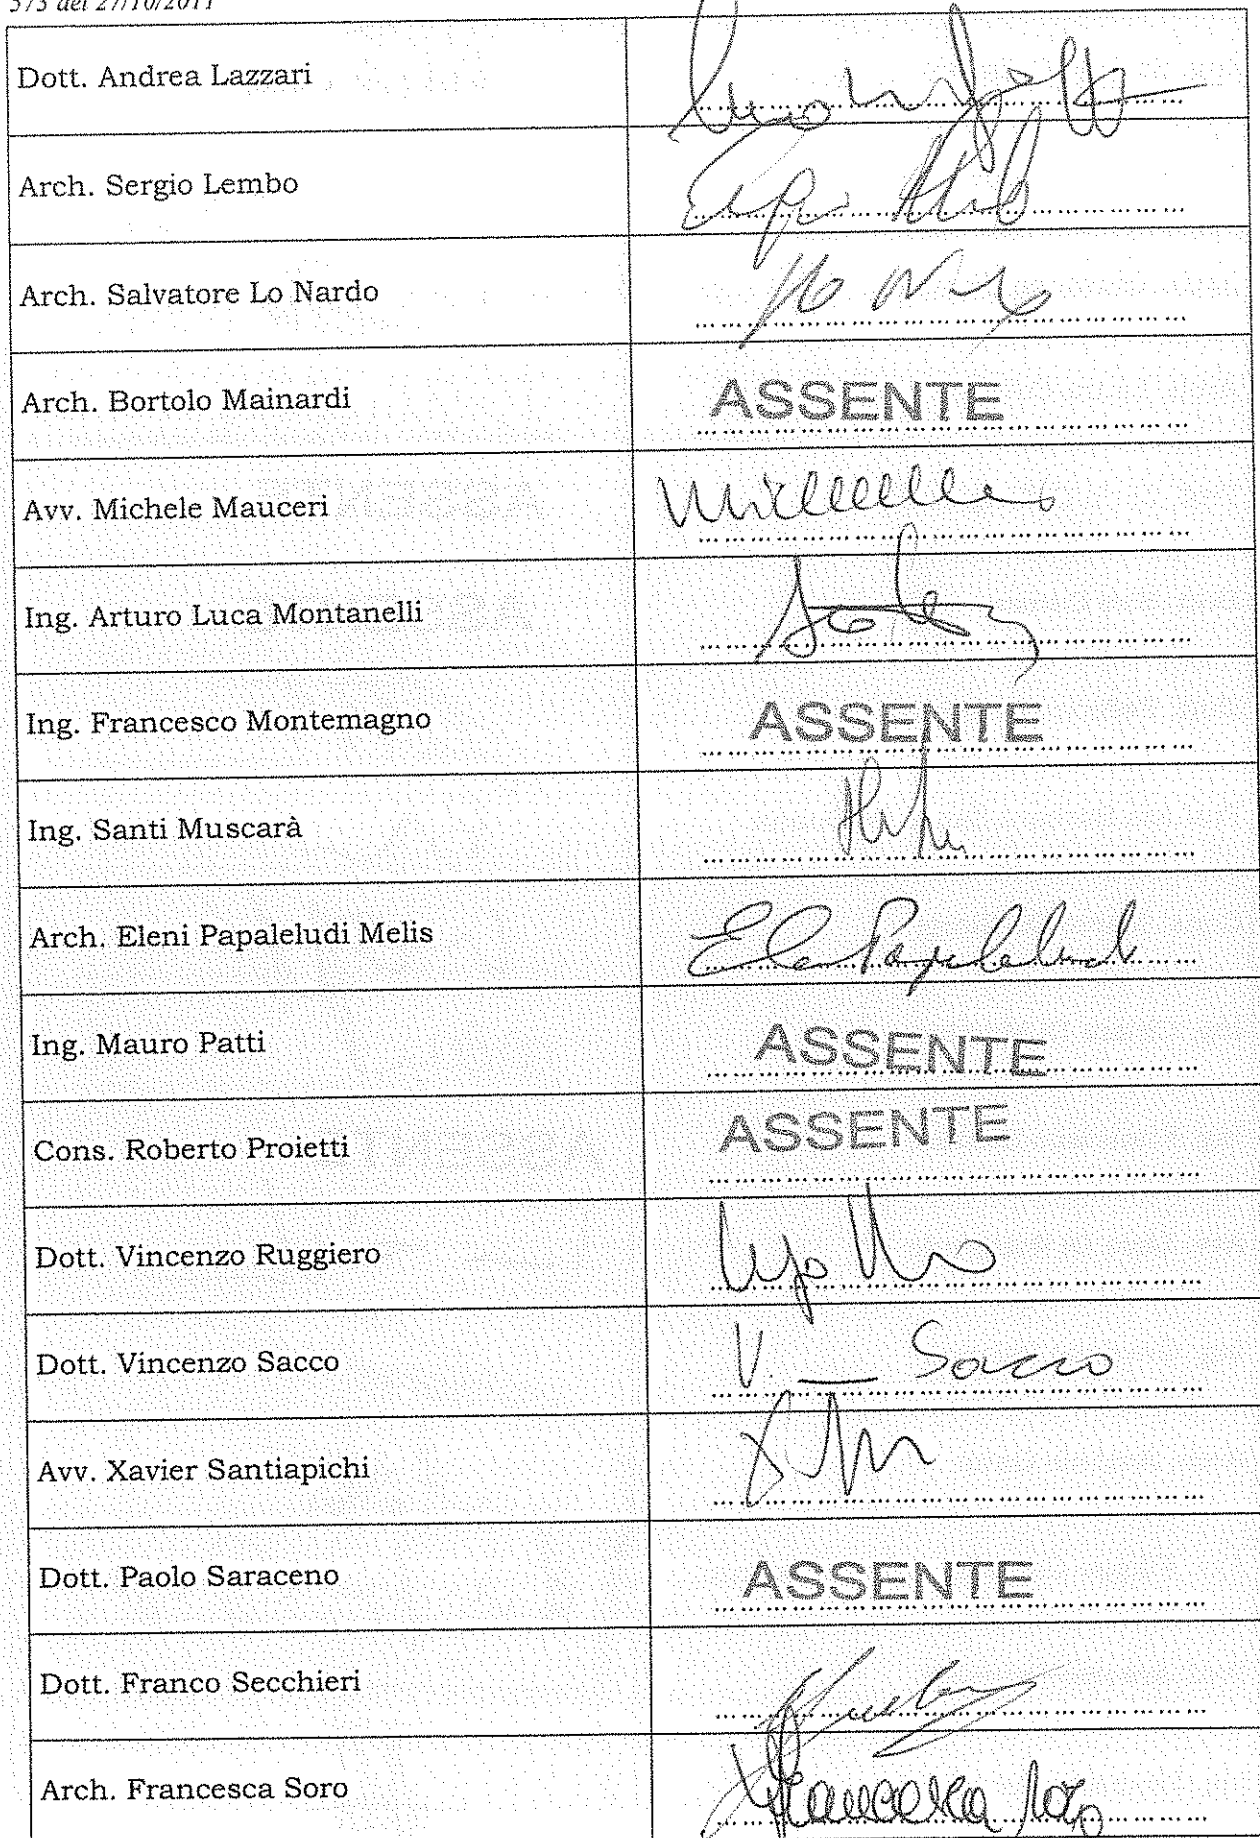 573 del 27/10/2011
Dott. Andrea Lazzari
Arch. Sergio Lembo
Arch. Salvatore Lo Nardo
Arch. Bortolo Mainardi ASSENTE
Avv. Michele Mauceri
Ing. Arturo Luca Montanelli
Ing. Francesco Montemagno ASSENTE
Ing. Santi Muscarà
Arch. Eleni Papaleludi Melis
Ing. Mauro Patti ASSENTE
Cons. Roberto Proietti ASSENTE
Dott. Vincenzo Ruggiero
Dott. Vincenzo Sacco V. Sacco
Avv. Xavier Santiapichi
Dott. Paolo Saraceno ASSENTE
Dott. Franco Secchieri
Arch. Francesca Soro Francesca Soro